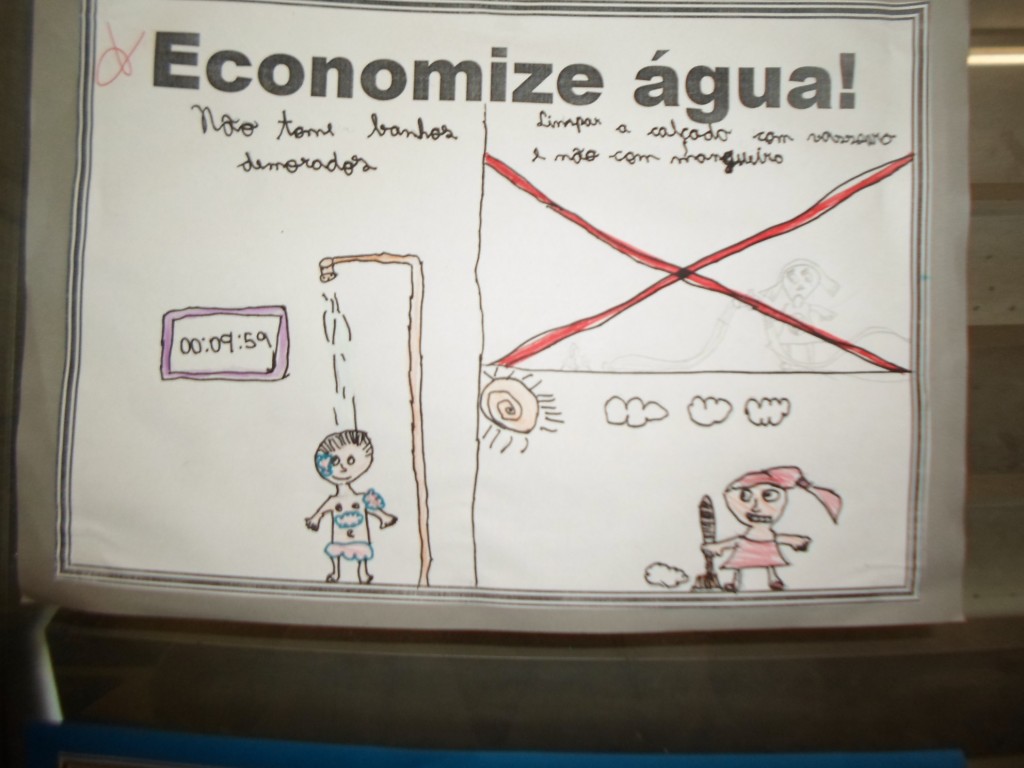 Economize água!
Não tome banhos
demorados
Limpar a calçada com vassoura
e não com mangueira
00:09:59